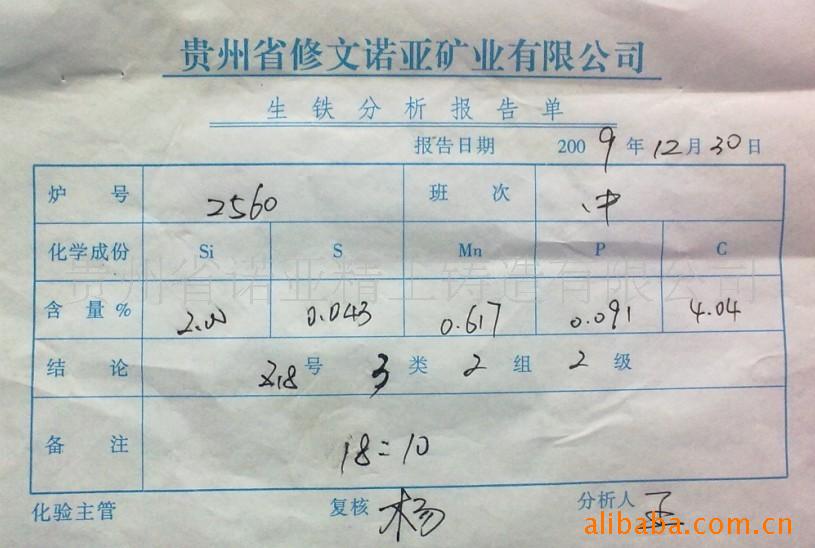 贵州省修文诺亚矿业有限公司
生铁分析报告单
报告日期 2009年12月30日
炉号 2560 班次 中
化学成份 Si S Mn P C
贵州省诺亚精工铸造有限公司
含量% 2.00 0.043 0.617 0.091 4.04
结论 Z18号 3类2组2级
备注 18=10
化验主管 复核 杨 分析人
alibaba.com.cn